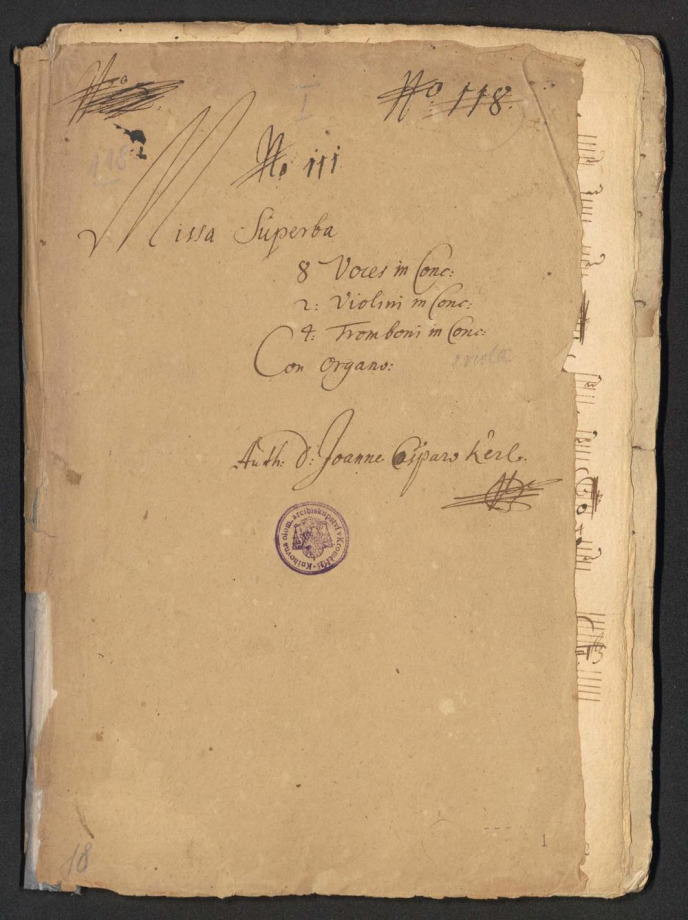 No
I
No 118.
118
No 111
Missa Superba
8 Voces in Conc:
2: Violini in Conc:
4: Tromboni in Conc:
Con Organo:
Auth: D: Joanne Casparo Kerl.
Knihovna olom. arcibiskupství v Kroměříži
18
1